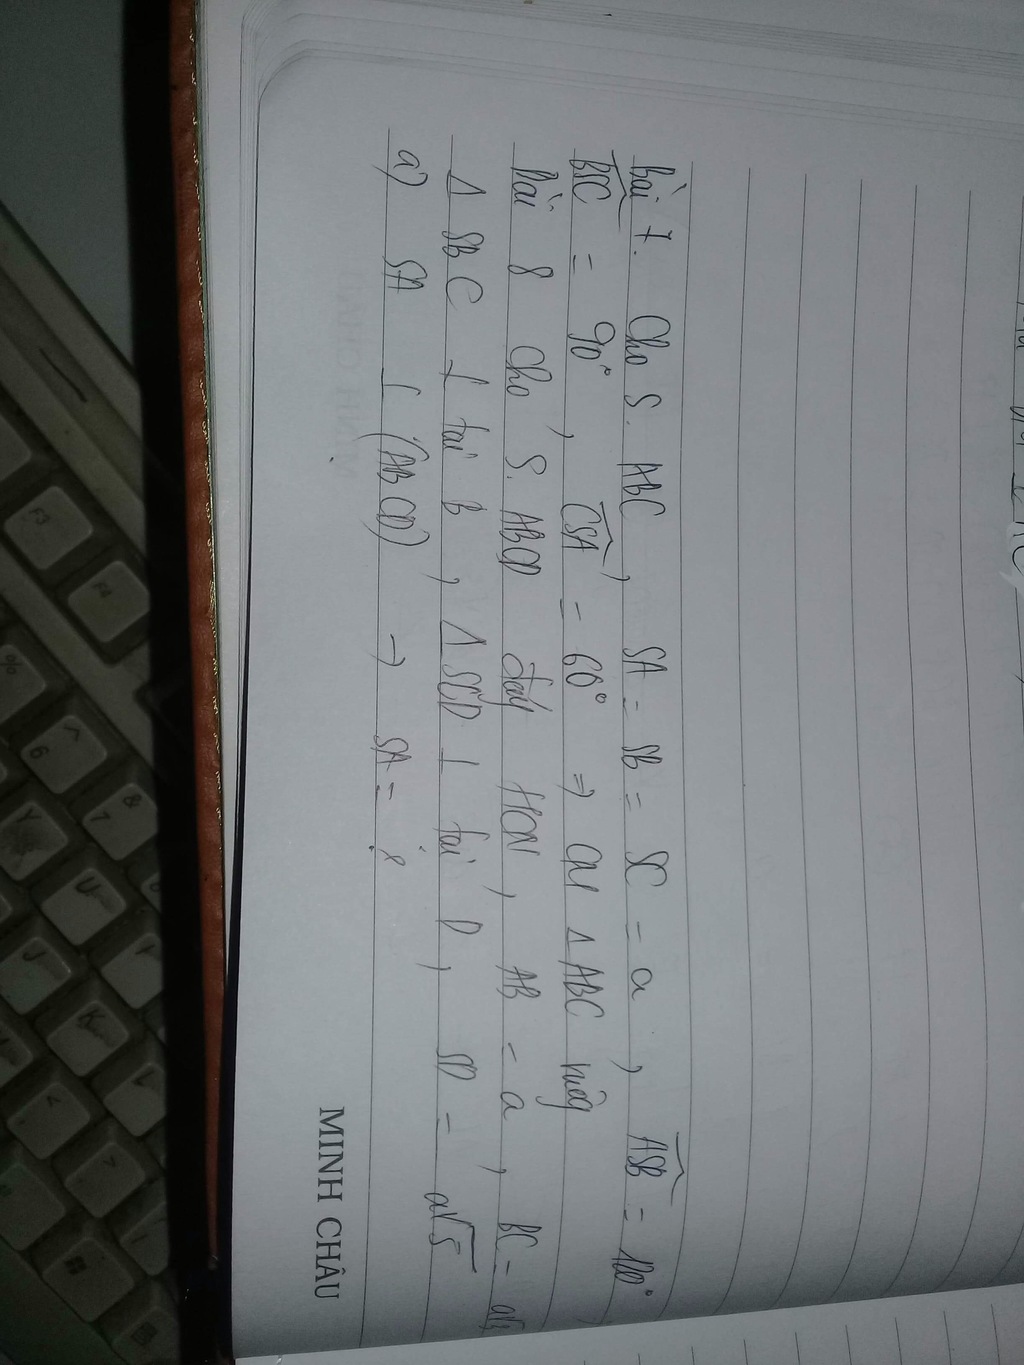 Bài 7. Cho S.ABC, SA = SB = SC = a, ASB = 120°
BSC = 90°, CSA = 60° => CM Δ ABC vuông
Bài 8 Cho S.ABCD đáy HCN, AB = a, BC = a√3
Δ SBC ⊥ tại B, Δ SCD ⊥ tại D, SD = a√5
a) SA ⊥ (ABCD) → SA = ?
MINH CHÂU